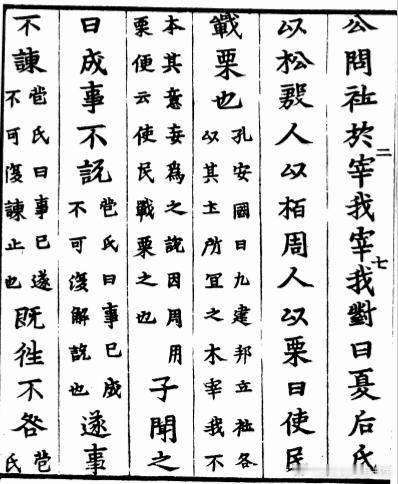 公問社於宰我宰我對曰夏后氏
二七
以松殷人以栢周人以栗曰使民
戰栗也
孔安國曰凡建邦立社各
以其土所冝之木宰我不
本其意妄爲之說因周用
栗便云使民戰栗之也
子聞之
曰成事不說
苞氏曰事已成
不可復解說也
遂事
不諫
苞氏曰事已遂
不可復諫止也
既徃不咎
苞
氏